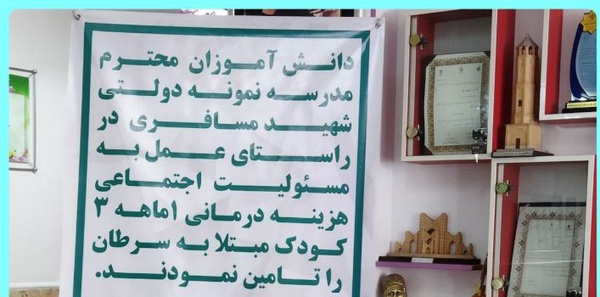 دانش آموزان محترم
مدرسه نمونه دولتی
شهید مسافری در
راستای عمل به
مسئولیت اجتماعی
هزینه درمانی ۱ماهه ۳
کودک مبتلا به سرطان
را تامین نمودند.